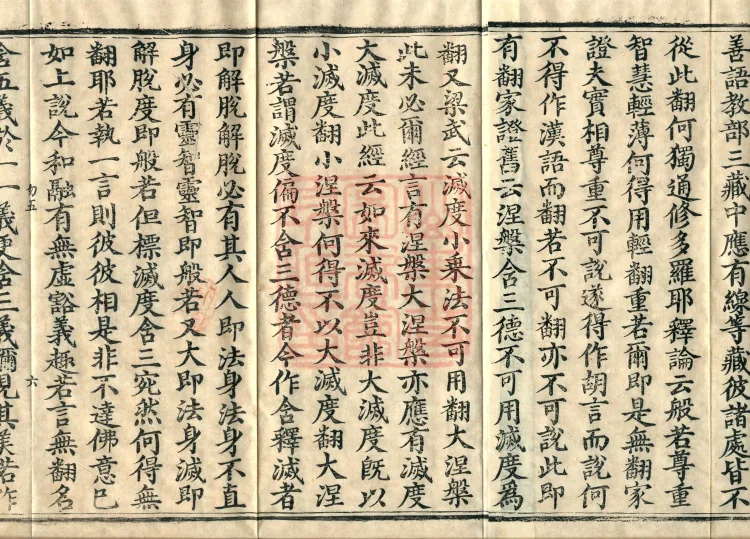 善語教部三藏中應有線等藏彼諸處皆不
從此翻何獨通修多羅耶釋論云般若尊重
智慧輕薄何得用輕翻重若爾即是無翻家
證夫實相尊重不可說遂得作胡言而說何
不得作漢語而翻若不可翻亦不可說此即
有翻家證舊云涅槃含三德不可用滅度爲
翻又梁武云滅度小乘法不可用翻大涅槃
此未必爾經言有涅槃大涅槃亦應有滅度
大滅度此經云如來滅度豈非大滅度旣以
小滅度翻小涅槃何得不以大滅度翻大涅
槃若謂滅度偏不含三德者今作含釋滅者
即解脫解脫必有其人人即法身法身不直
身必有靈智靈智即般若又大即法身滅即
解脫度即般若但標滅度含三宛然何得無
翻耶若執一言則彼彼相是非不達佛意已
如上說今和融有無虛豁義趣若言無翻名
含五義於一一義更含三義彌見其美若作
勿五
六